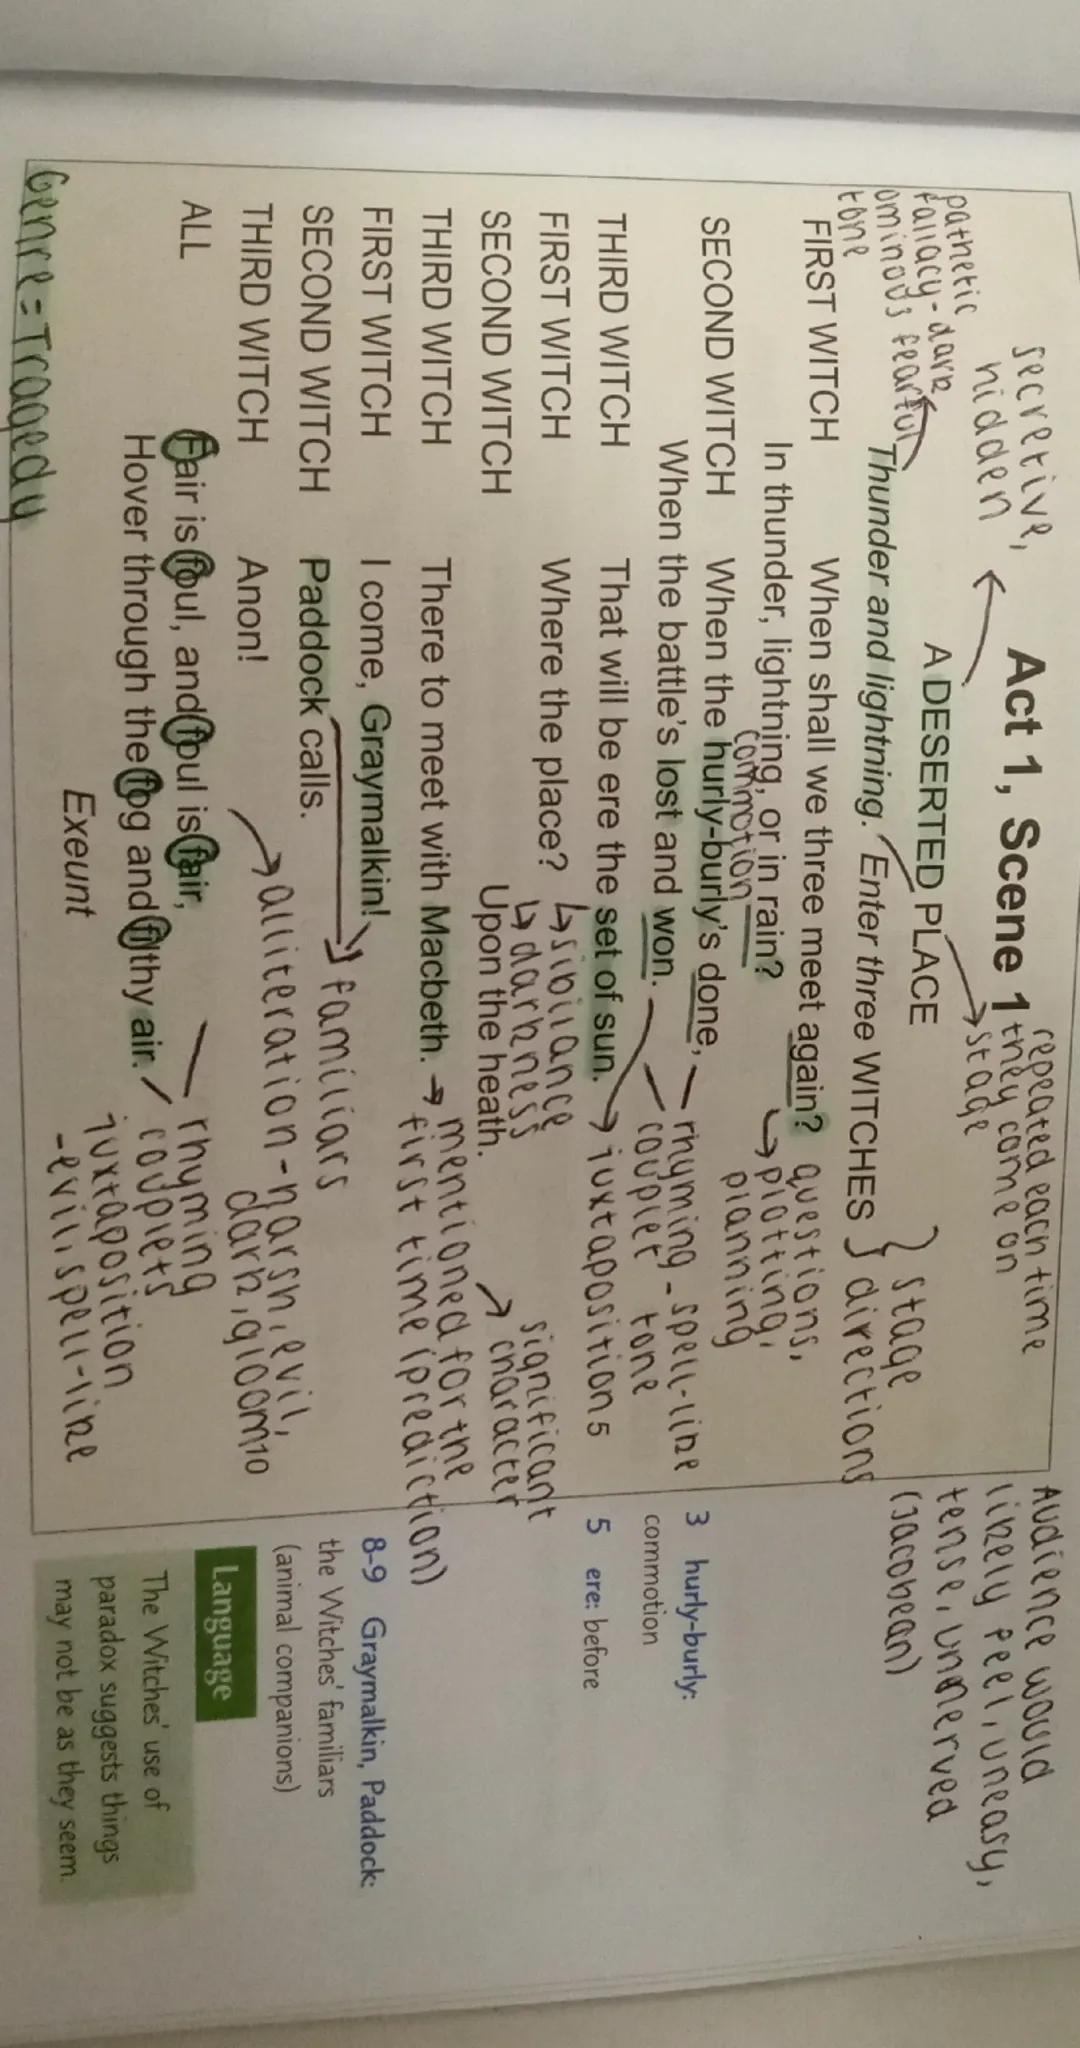 secretive,
hidden
Act 1, Scene 1
repeated each time
they come on
stage
A DESERTED PLACE
pathetic
fallacy - dark
ominous fearful
tone
Thunder and lightning. Enter three WITCHES } stage
directions
FIRST WITCH When shall we three meet again?
In thunder, lightning, or in rain?
questions,
plotting,
planning
SECOND WITCH When the hurly-burly's done,
commotion
When the battle's lost and won.
rhyming - spell-like
couplet - tone
THIRD WITCH That will be ere the set of sun. → juxtaposition 5
↳ sibilance
↳ darkness
FIRST WITCH Where the place?
SECOND WITCH Upon the heath.
THIRD WITCH There to meet with Macbeth. → mentioned for the
first time (prediction)
significant
character
FIRST WITCH I come, Graymalkin!
SECOND WITCH Paddock calls.
familiars
THIRD WITCH Anon!
alliteration - harsh, evil,
dark, gloom 10
ALL Fair is foul, and foul is fair,
Hover through the fog and filthy air.
rhyming
couplets
juxtaposition
- evil, spell-like
Exeunt
Genre = Tragedy
Audience would
likely feel, uneasy,
tense, unnerved
(Jacobean)
3 hurly-burly:
commotion
5 ere: before
8-9 Graymalkin, Paddock:
the Witches' familiars
(animal companions)
Language
The Witches' use of
paradox suggests things
may not be as they seem.